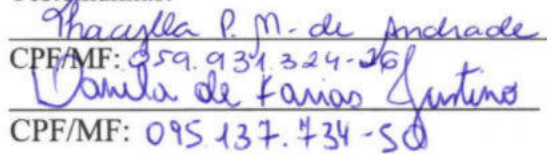 Thacylla P. M. de Andrade
CPF/MF: 059.931.324-26
Danila de Farias Justino
CPF/MF: 095.137.734-50